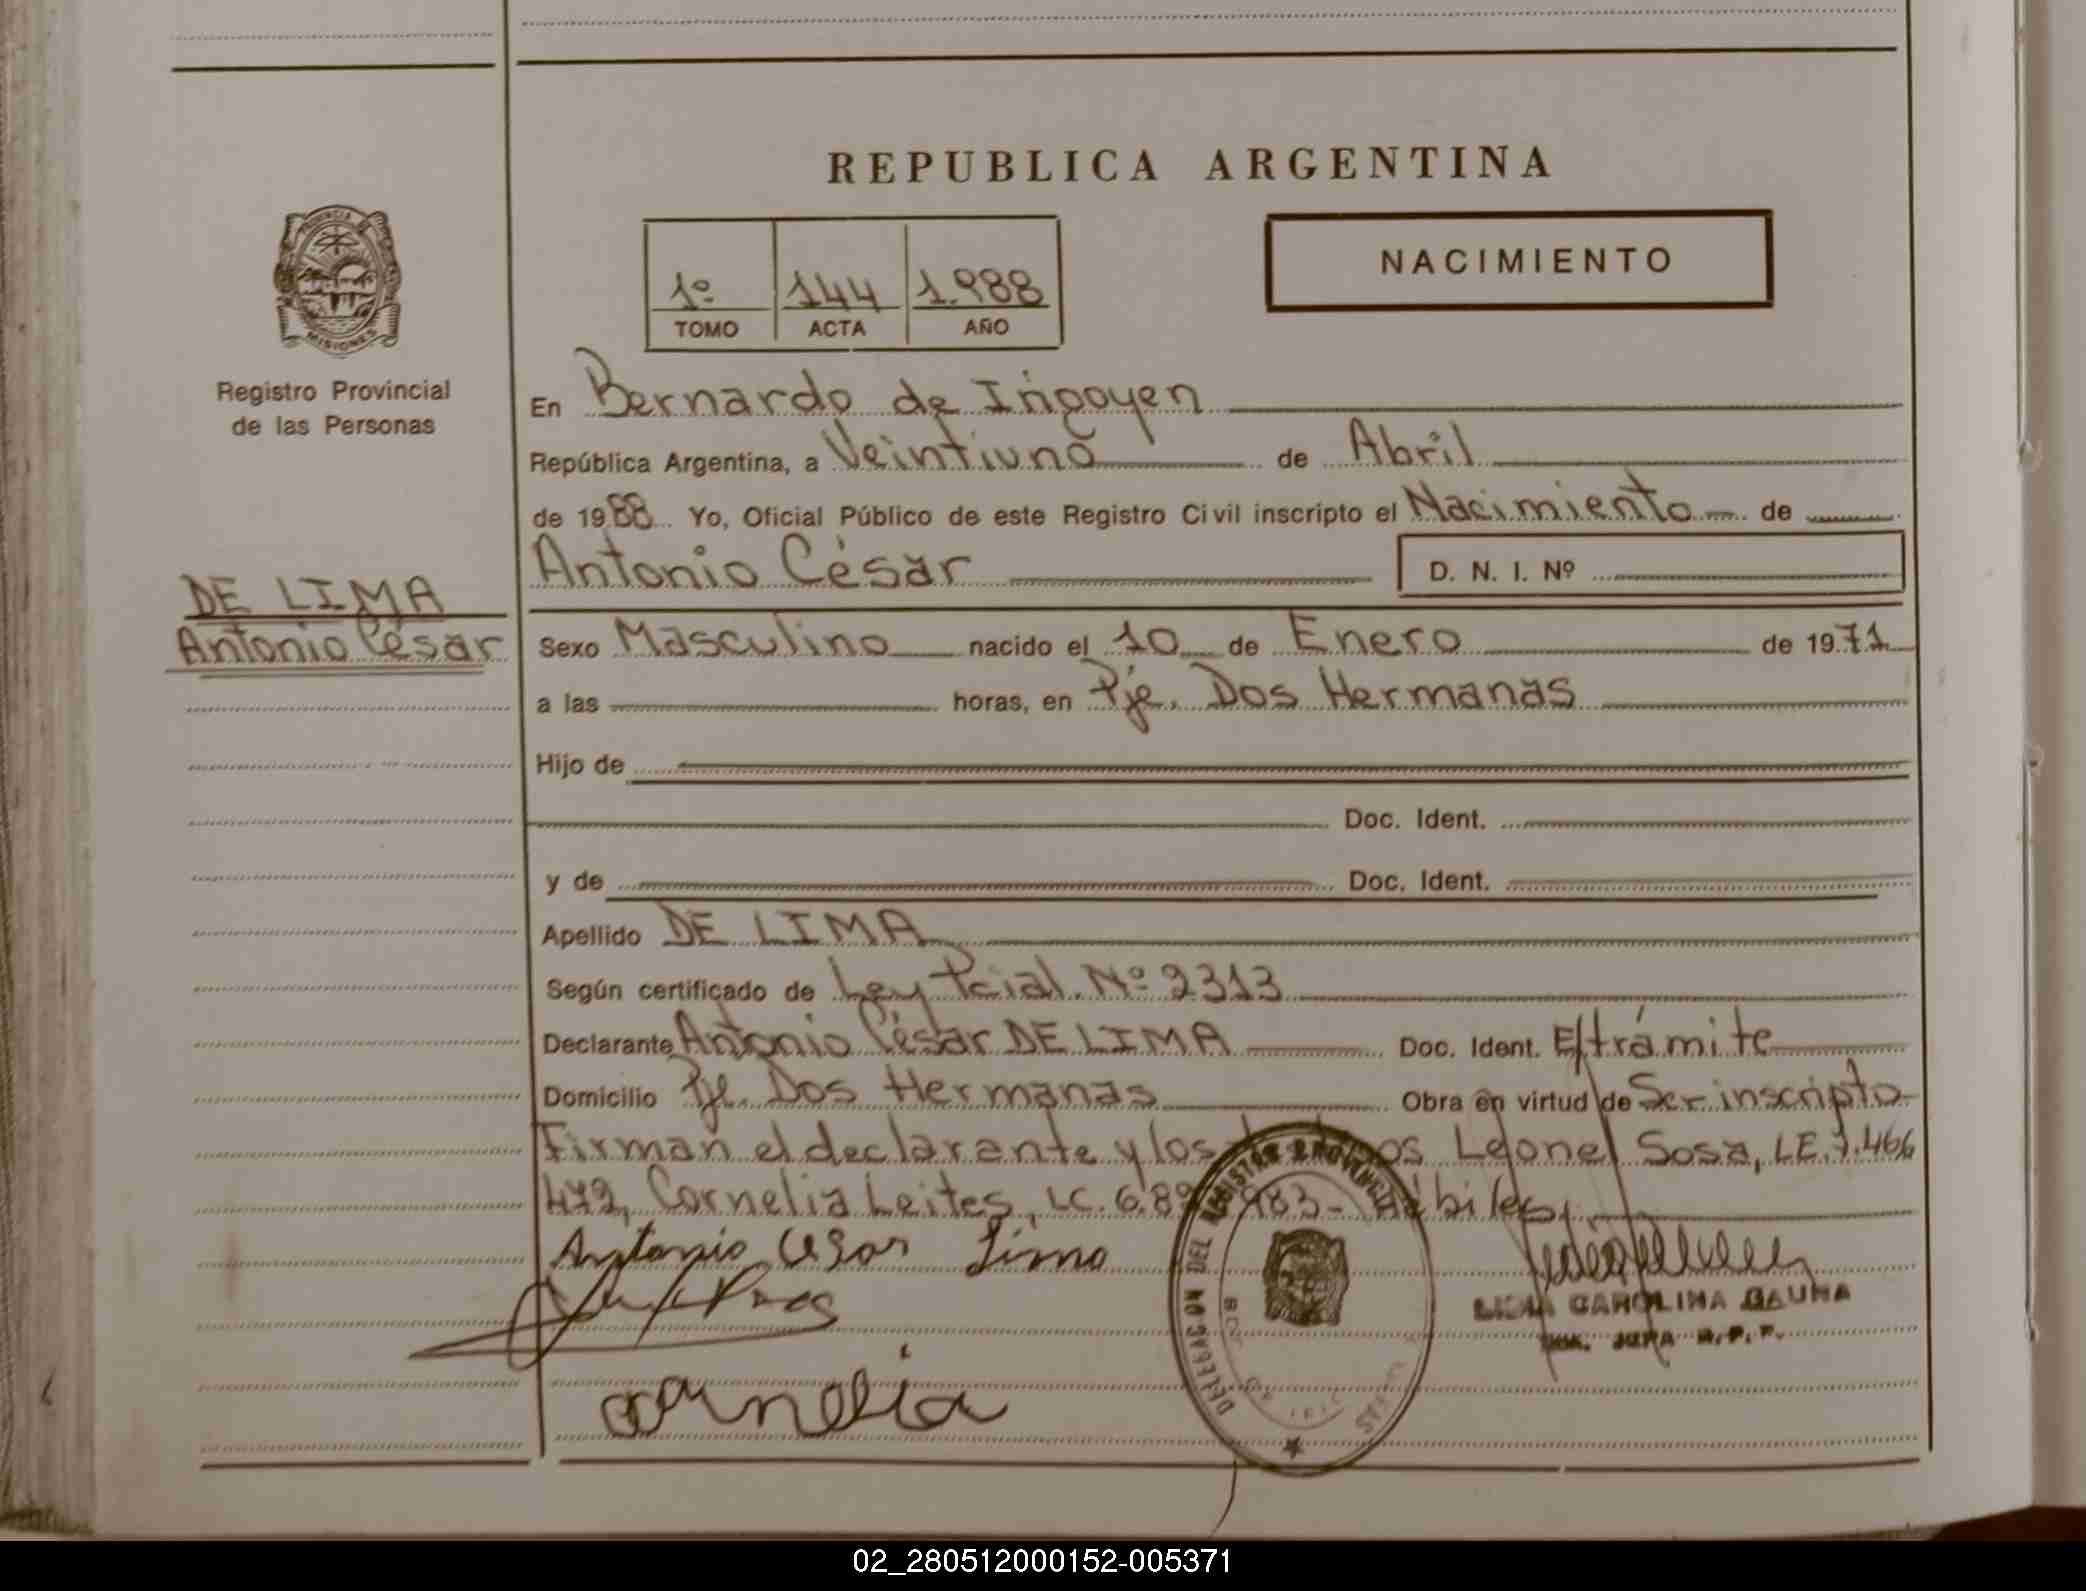 REPUBLICA ARGENTINA
PROVINCIA
MISIONES
Registro Provincial
de las Personas
1º 144 1.988
TOMO ACTA AÑO
NACIMIENTO
En Bernardo de Irigoyen
República Argentina, a Veintiuno de Abril
de 1988 Yo, Oficial Público de este Registro Civil inscripto el Nacimiento de
Antonio César D. N. I. Nº
DE LIMA
Antonio César
Sexo Masculino nacido el 10 de Enero de 1971
a las horas, en Pje. Dos Hermanas
Hijo de
Doc. Ident.
y de Doc. Ident.
Apellido DE LIMA
Según certificado de Ley Pcial. Nº 2313
Declarante Antonio César DE LIMA Doc. Ident. E/trámite
Domicilio Pje. Dos Hermanas Obra en virtud de Ser inscripto
Firman el declarante y los Leonel Sosa, LE. 7.466
472, Cornelia Leites, LC. 983- Hábiles,
Antonio Cesar Limo
CAROLINA GAUNA
JEFA R.P.P.
cornelia
DELEGACION DEL REGISTRO PROVINCIAL
02_280512000152-005371